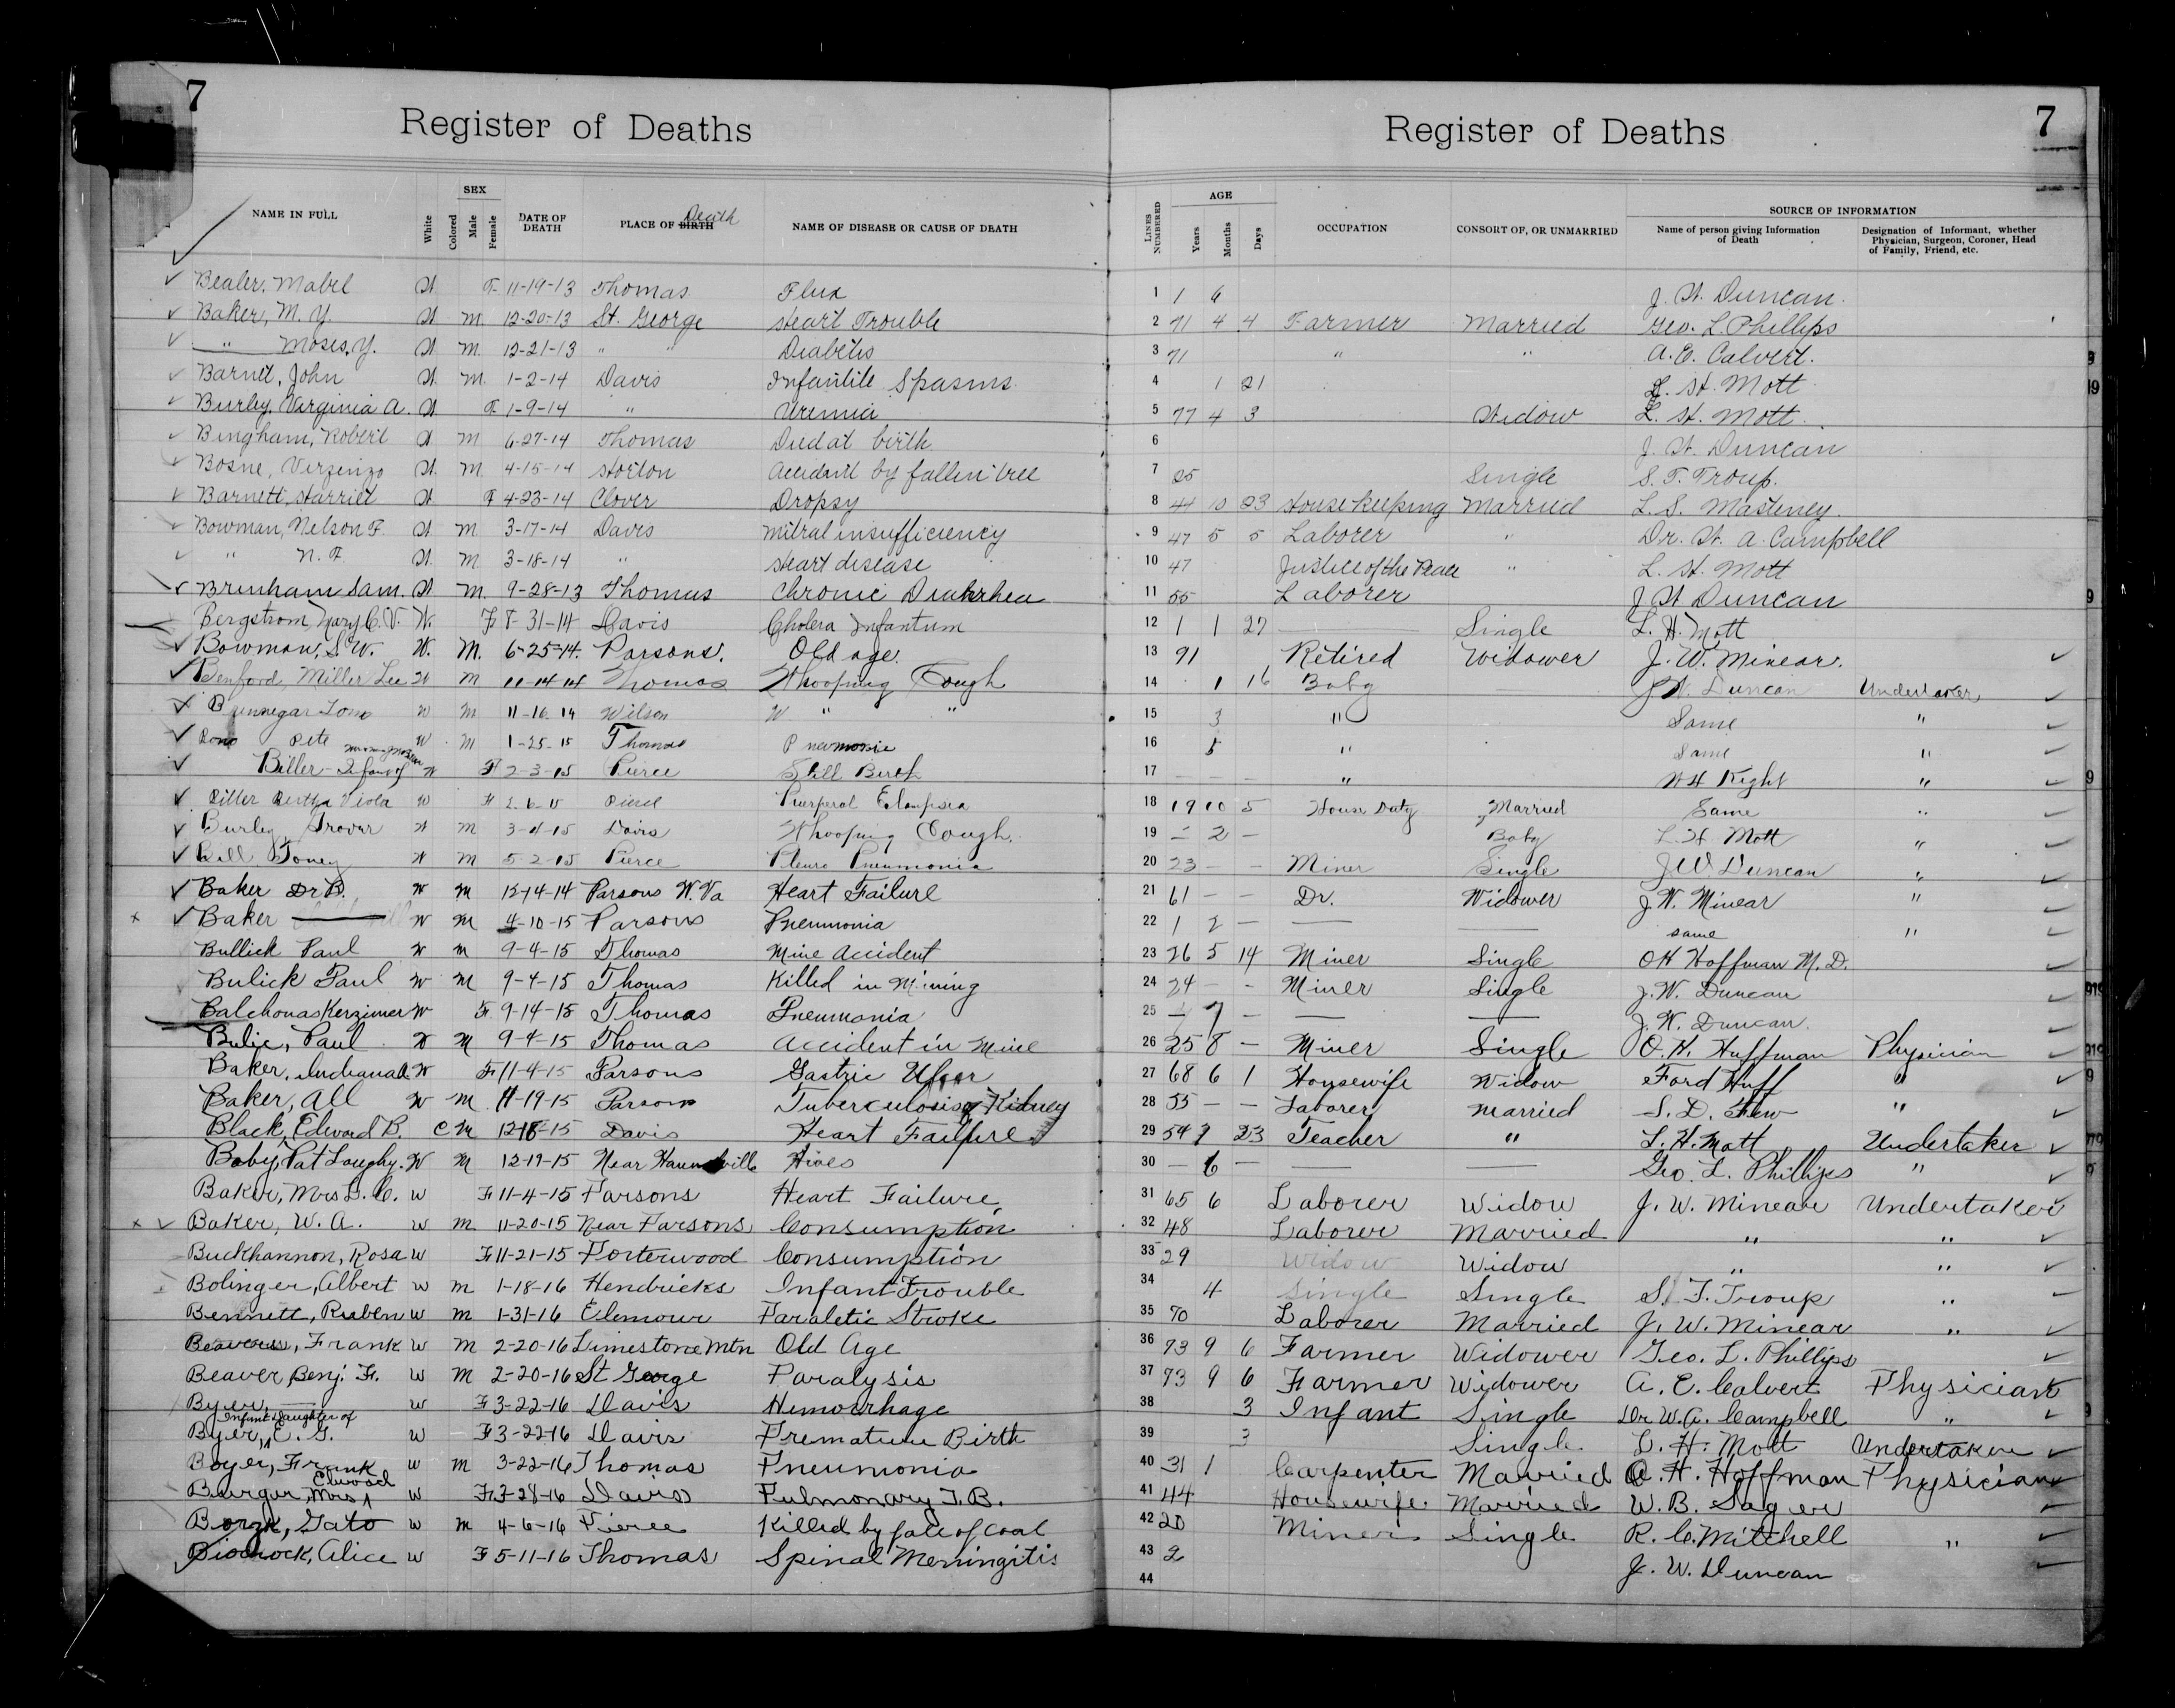 7
Register of Deaths
NAME IN FULL White Colored SEX Male Female DATE OF DEATH PLACE OF BIRTH Death NAME OF DISEASE OR CAUSE OF DEATH
Bealer, Mabel W. F. 11-19-13 Thomas Flux
Baker, M. Y. W. M. 12-20-13 St. George Heart Trouble
" Moses, Y. W. M. 12-21-13 " " Diabetis
Barnet, John W. M. 1-2-14 Davis Infantile Spasms
Burley, Virginia A. W. F. 1-9-14 " Uremia
Bingham, Robert W. M 6-27-14 Thomas Died at birth
Bosne, W. M. 4-15-14 Horton Accident by fallen tree
Barnett, Harriet W. F 4-23-14 Clover Dropsy
Bowman, Nelson F. W M 3-17-14 Davis Mitral insufficiency
" N. F. W. M 3-18-14 " Heart disease
Brenham Sam. W M. 9-28-13 Thomas Chronic Diahrhea
Bergstrom, Mary C. V. W. F 8-31-14 Davis Cholera Infantum
Bowman, S. W. W. M. 6-25-14. Parsons. Old age.
Benford, Miller Lee W M 11-14-14 Thomas Whooping Cough
Tom W M 11-16-14 Wilson W " "
Pete W M 1-25-15 Thomas Pneumonia
Biller - Infant of W F 2-3-15 Pierce Still Birth
Biller Bertha Viola W F 2-6-15 Pierce Puerperal Eclampsia
Burley Grover W M 3-11-15 Davis Whooping Cough.
Bell Toney W M 5-2-15 Pierce Pleuro Pneumonia
Baker Dr B. W M 12-14-14 Parsons W. Va Heart Failure
Baker W M 4-10-15 Parsons Pneumonia
Bullick Paul W M 9-4-15 Thomas Mine Accident
Bulick Paul W M 9-4-15 Thomas Killed in Mining
Balchonas Kerzimer W F. 9-14-15 Thomas Pneumonia
Bulic, Paul W M 9-4-15 Thomas Accident in Mine
Baker, Indiana A. W F 11-4-15 Parsons Gastric Ulcer
Baker, All W M. 11-19-15 Parsons Tuberculosis of Kidney
Black, Edward B. C M 12-18-15 Davis Heart Failure
Boby, Pat Loughy. W M 12-19-15 Near Hives
Baker, Mrs. D. C. W F 11-4-15 Parsons Heart Failure
Baker, W. A. W M 11-20-15 Near Parsons Consumption
Buckhannon, Rosa W F 11-21-15 Porterwood Consumption
Bolinger, Albert W M 1-18-16 Hendricks Infant Trouble
Bennett, Ruben W M 1-31-16 Elemour Paraletic Stroke
Beavers, Frank W M 2-20-16 Limestone Mtn Old Age
Beaver, Benj. F. W M 2-20-16 St George Paralysis
Byer, — W F 3-22-16 Davis Hemorrhage
Infant Daughter of
Byer, E. G. W F 3-22-16 Davis Premature Birth
Boyer, Frank W M 3-22-16 Thomas Pneumonia
Burger, Mrs Elwood W F 3-28-16 Davis Pulmonary T. B.
Borzk, Gato W M 4-6-16 Pierce Killed by fall of coal
Alice W F 5-11-16 Thomas Spinal Meningitis
7
Register of Deaths
LINES NUMBERED AGE Years Months Days OCCUPATION CONSORT OF, OR UNMARRIED SOURCE OF INFORMATION
Name of person giving Information of Death
Designation of Informant, whether Physician, Surgeon, Coroner, Head of Family, Friend, etc.
1 1 6 J. W. Duncan.
2 71 4 4 Farmer Married Geo. L. Phillips
3 71 " " A. E. Calvert.
4 1 21 L. H. Mott
5 77 4 3 Widow L. H. Mott
6 J. W. Duncan
7 25 Single S. T. Troup.
8 44 10 23 Housekeeping Married L. S. Masteney.
9 47 5 5 Laborer " Dr. W. A. Campbell
10 47 Justice of the Peace " L. H. Mott
11 55 Laborer J W Duncan
12 1 1 27 Single L. H. Mott
13 91 Retired Widower J. W. Minear.
14 1 16 Baby J W. Duncan Undertaker
15 3 " Same "
16 5 " Same "
17 " W H Kight "
18 19 10 5 House Duty Married Same "
19 — 2 — Baby L. H. Mott "
20 23 — — Miner Single J W Duncan "
21 61 — — Dr. Widower J W. Minear "
22 1 2 — same "
23 26 5 14 Miner Single O H Hoffman M. D.
24 24 - - Miner Single J. W. Duncan
25 — 7 — J. W. Duncan.
26 25 8 — Miner Single O. H. Huffman Physician
27 68 6 1 Housewife Widow Ford Huff "
28 55 — — Laborer Married S. D. Few "
29 54 7 23 Teacher " L. H. Mott Undertaker
30 — 6 — Geo. L. Phillips "
31 65 6 Laborer Widow J. W. Minear Undertaker
32 48 Laborer Married " "
33 29 Widow Widow " "
34 4 Single Single S. T. Troup "
35 70 Laborer Married J. W. Minear "
36 73 9 6 Farmer Widower Geo. L. Phillips
37 73 9 6 Farmer Widower A. E. Calvert Physician
38 3 Infant Single Dr W. A. Campbell "
39 3 Single L. H. Mott Undertaker
40 31 1 Carpenter Married O. H. Hoffman Physician
41 44 Housewife Married W. B. Sager
42 20 Miner Single R. C. Mitchell "
43 2 J. W. Duncan
44